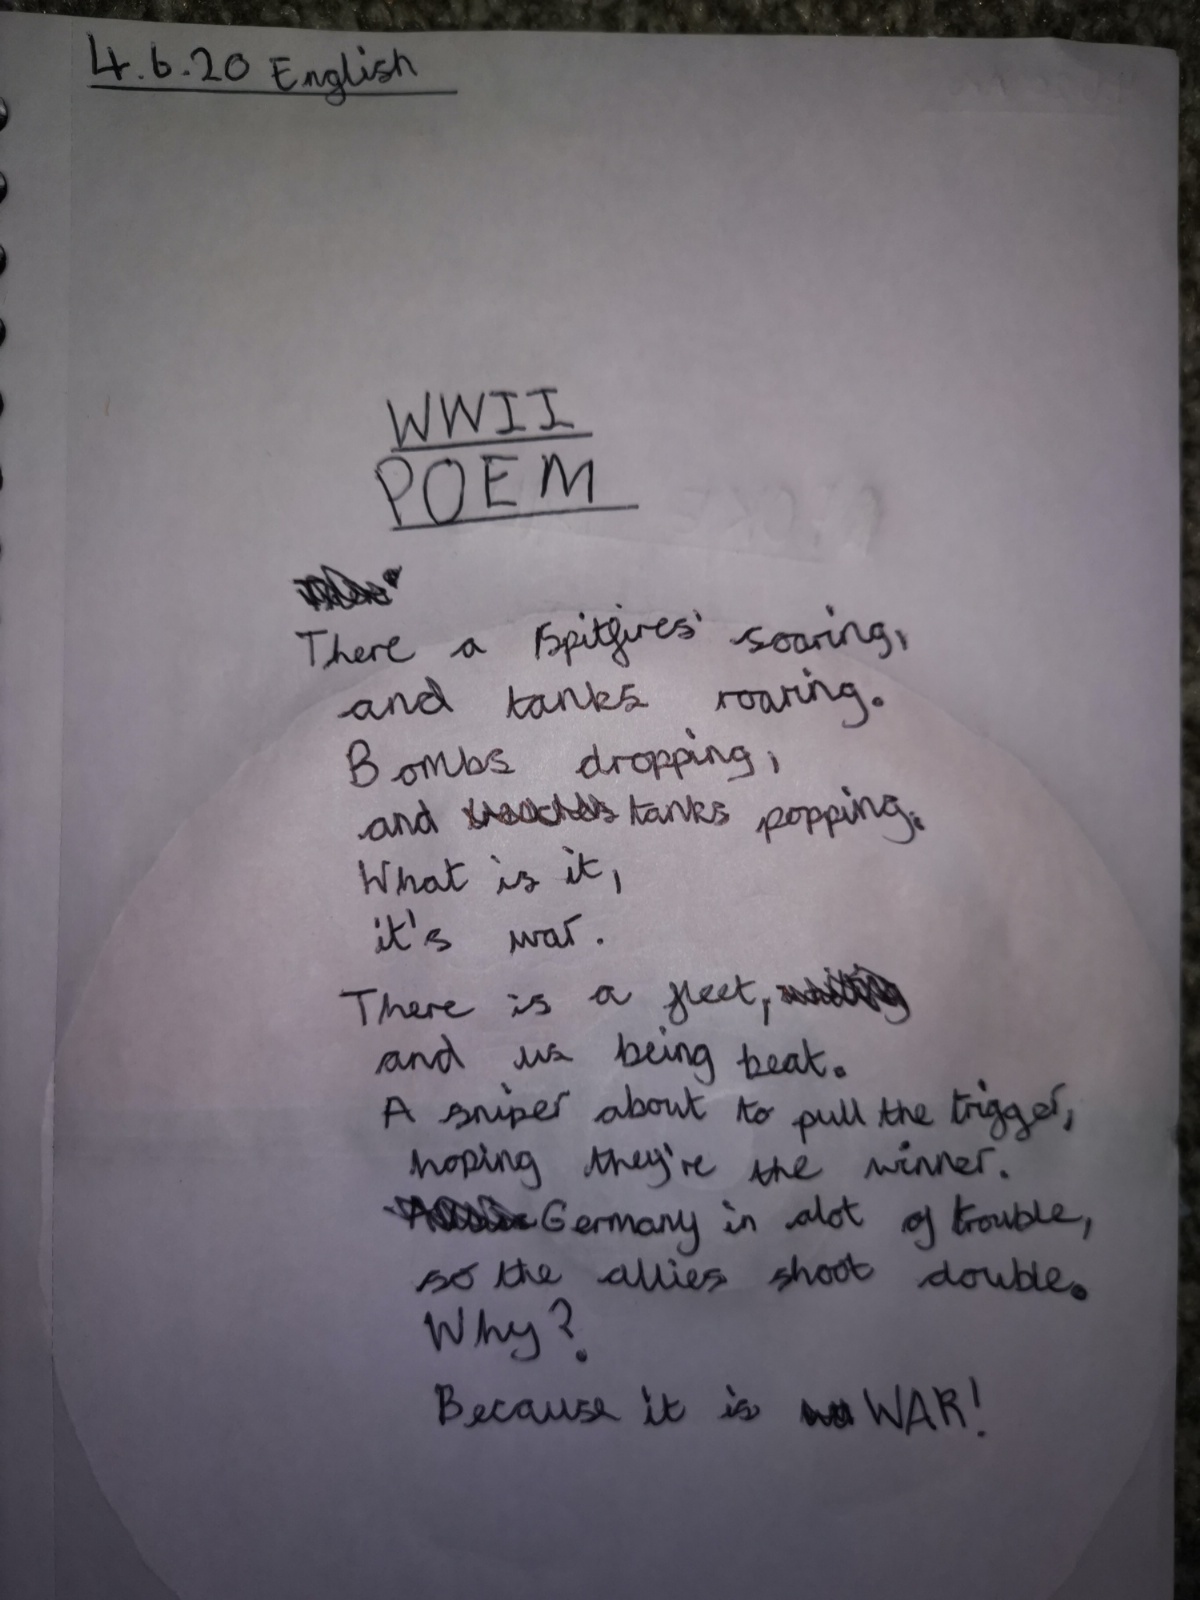 4.6.20 English
WWII
POEM
There a spitfires' soaring,
and tanks roaring.
Bombs dropping,
and tanks popping.
What is it,
it's war.
There is a fleet,
and us being beat.
A sniper about to pull the trigger,
hoping they're the winner.
Germany in alot of trouble,
so the allies shoot double.
Why?
Because it is WAR!